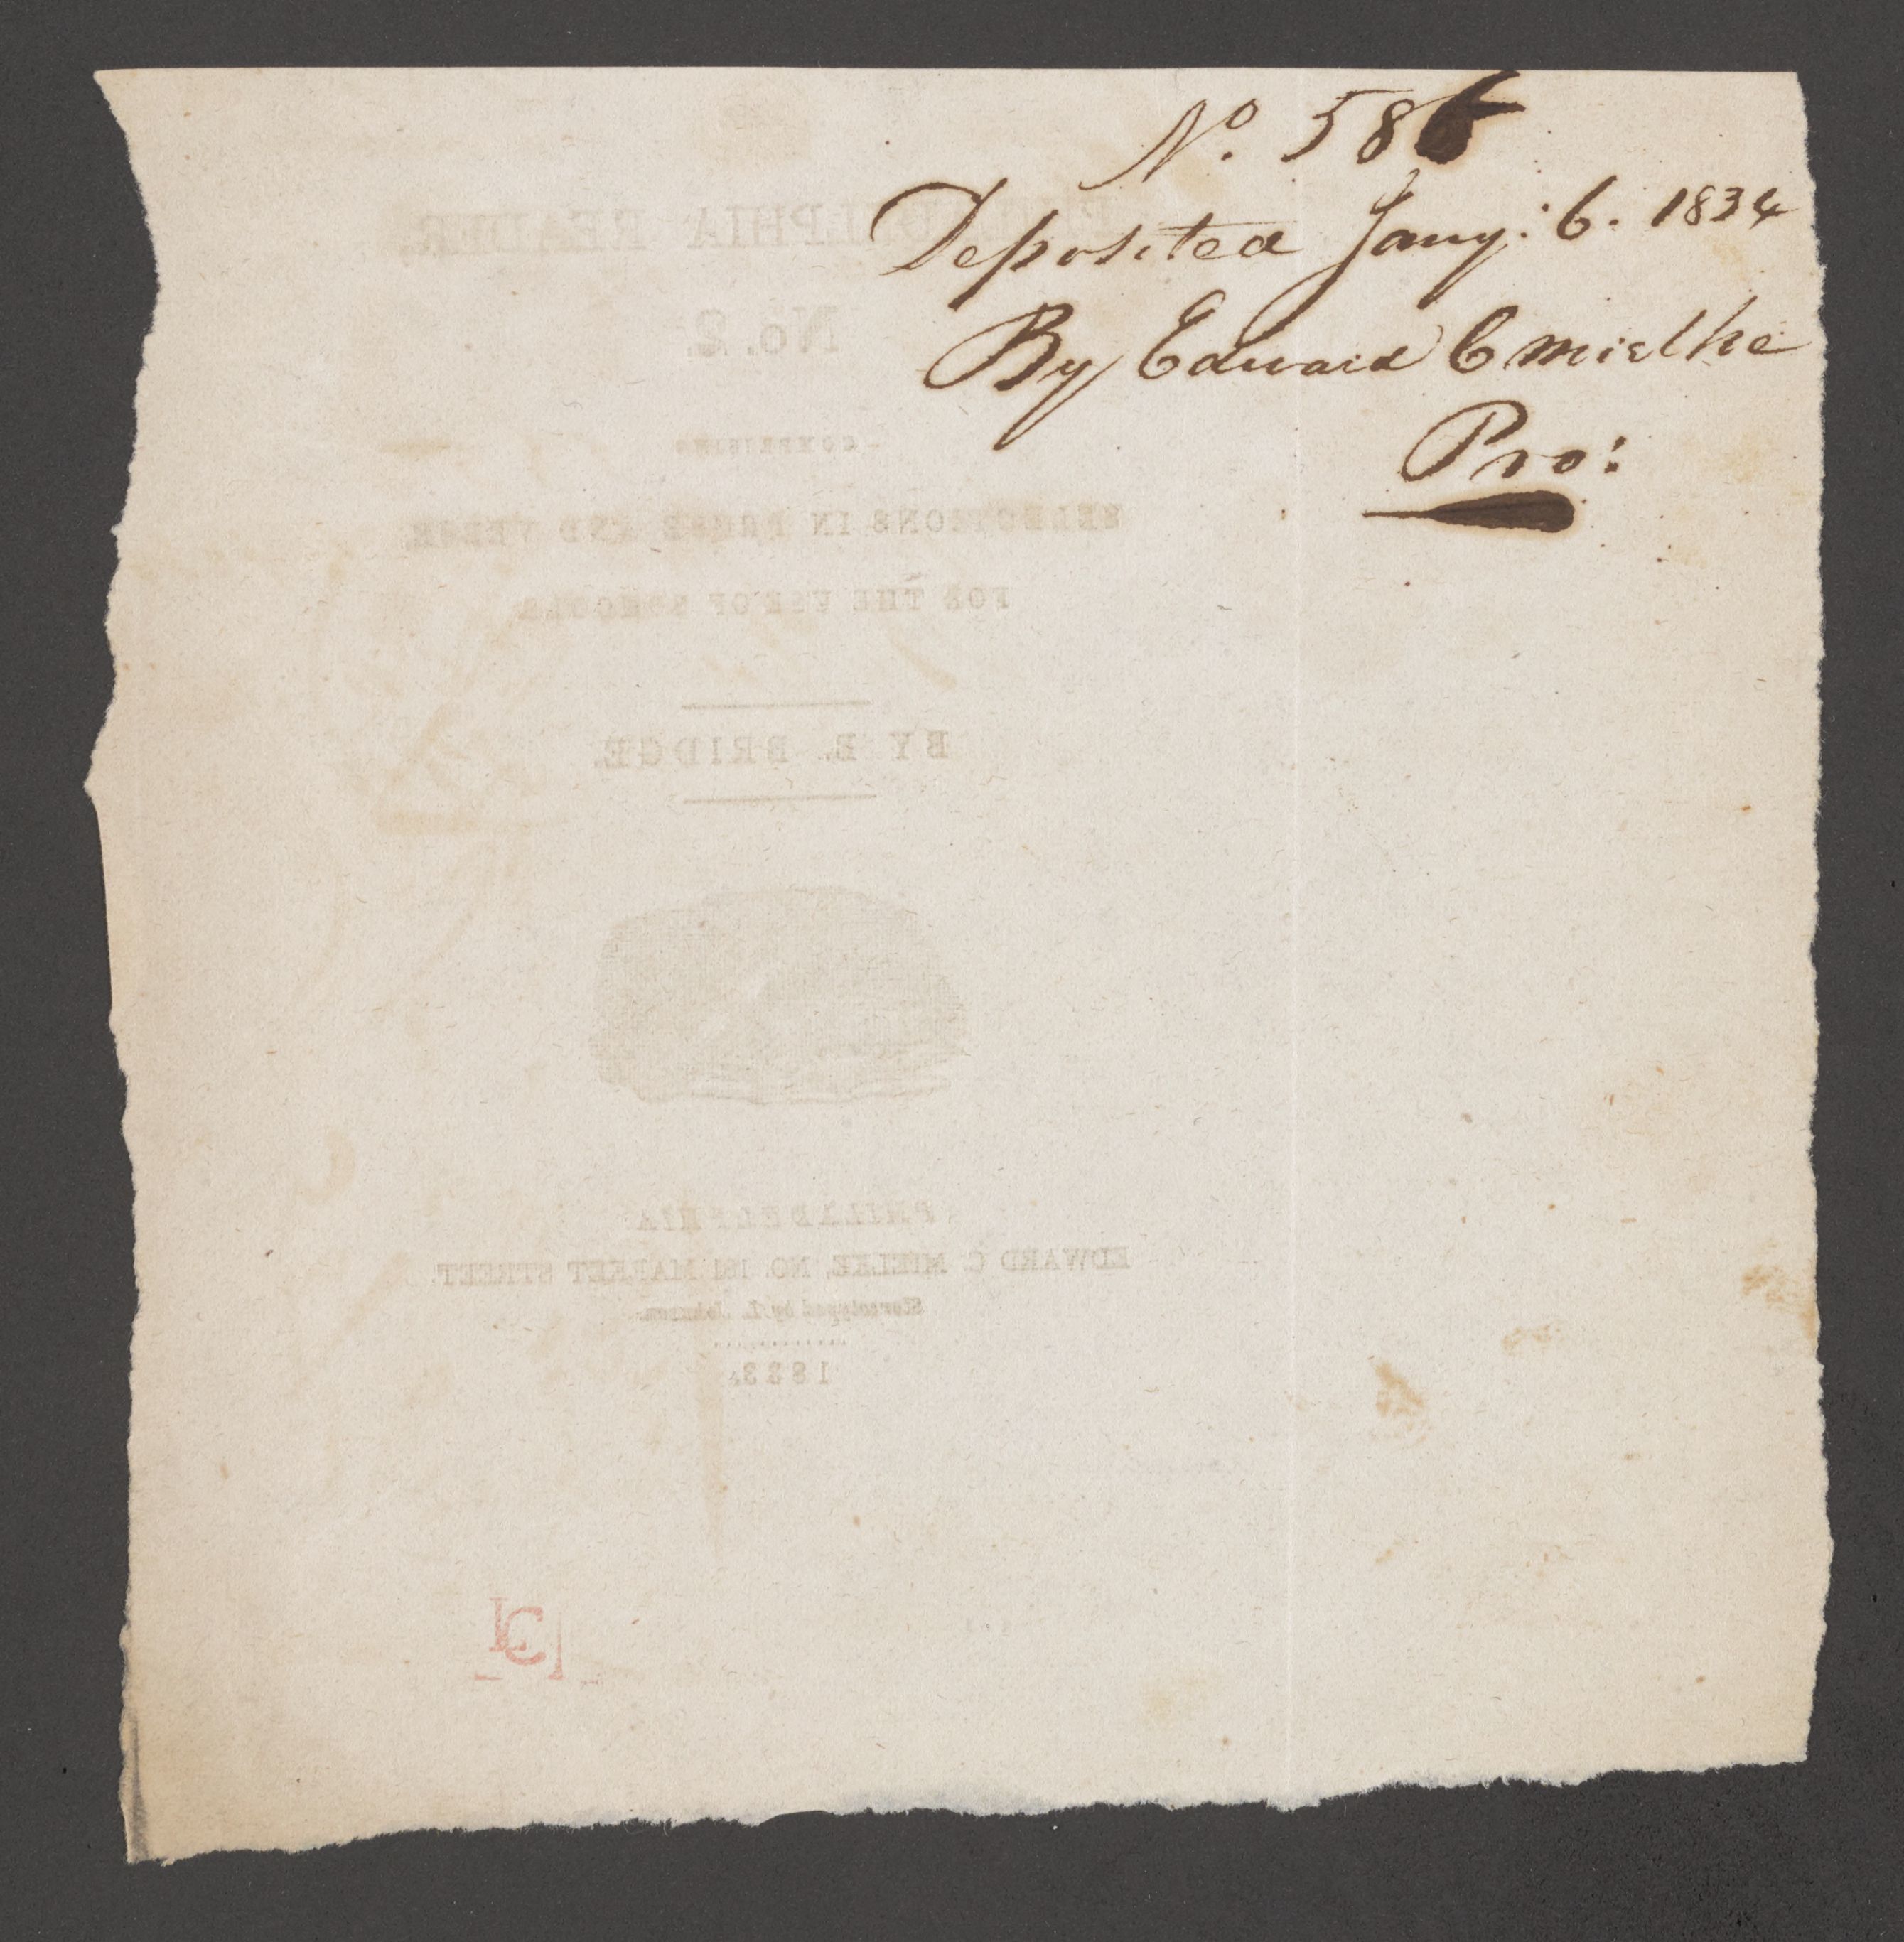 No. 586
Deposited Jany: 6. 1834
By Edward C Mielke
Pro:
PHILADELPHIA READER,
No. 2.
COMPRISING
SELECTIONS IN PROSE AND VERSE
FOR THE USE OF SCHOOLS
BY E. BRIDGE.
PHILADELPHIA:
EDWARD C. MIELKE, NO. 181 MARKET STREET.
Stereotyped by L. Johnson.
1833.
LC